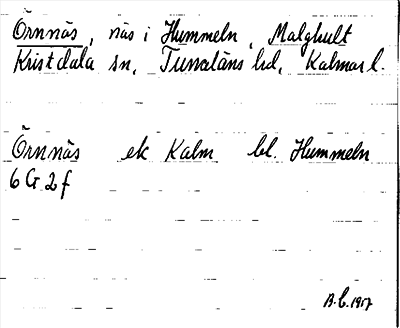 Örnnäs, näs i Hummeln, Malghult
Kristdala sn, Tunaläns hd, Kalmar l.
Örnnäs ek Kalm bl. Hummeln
6 G 2 f